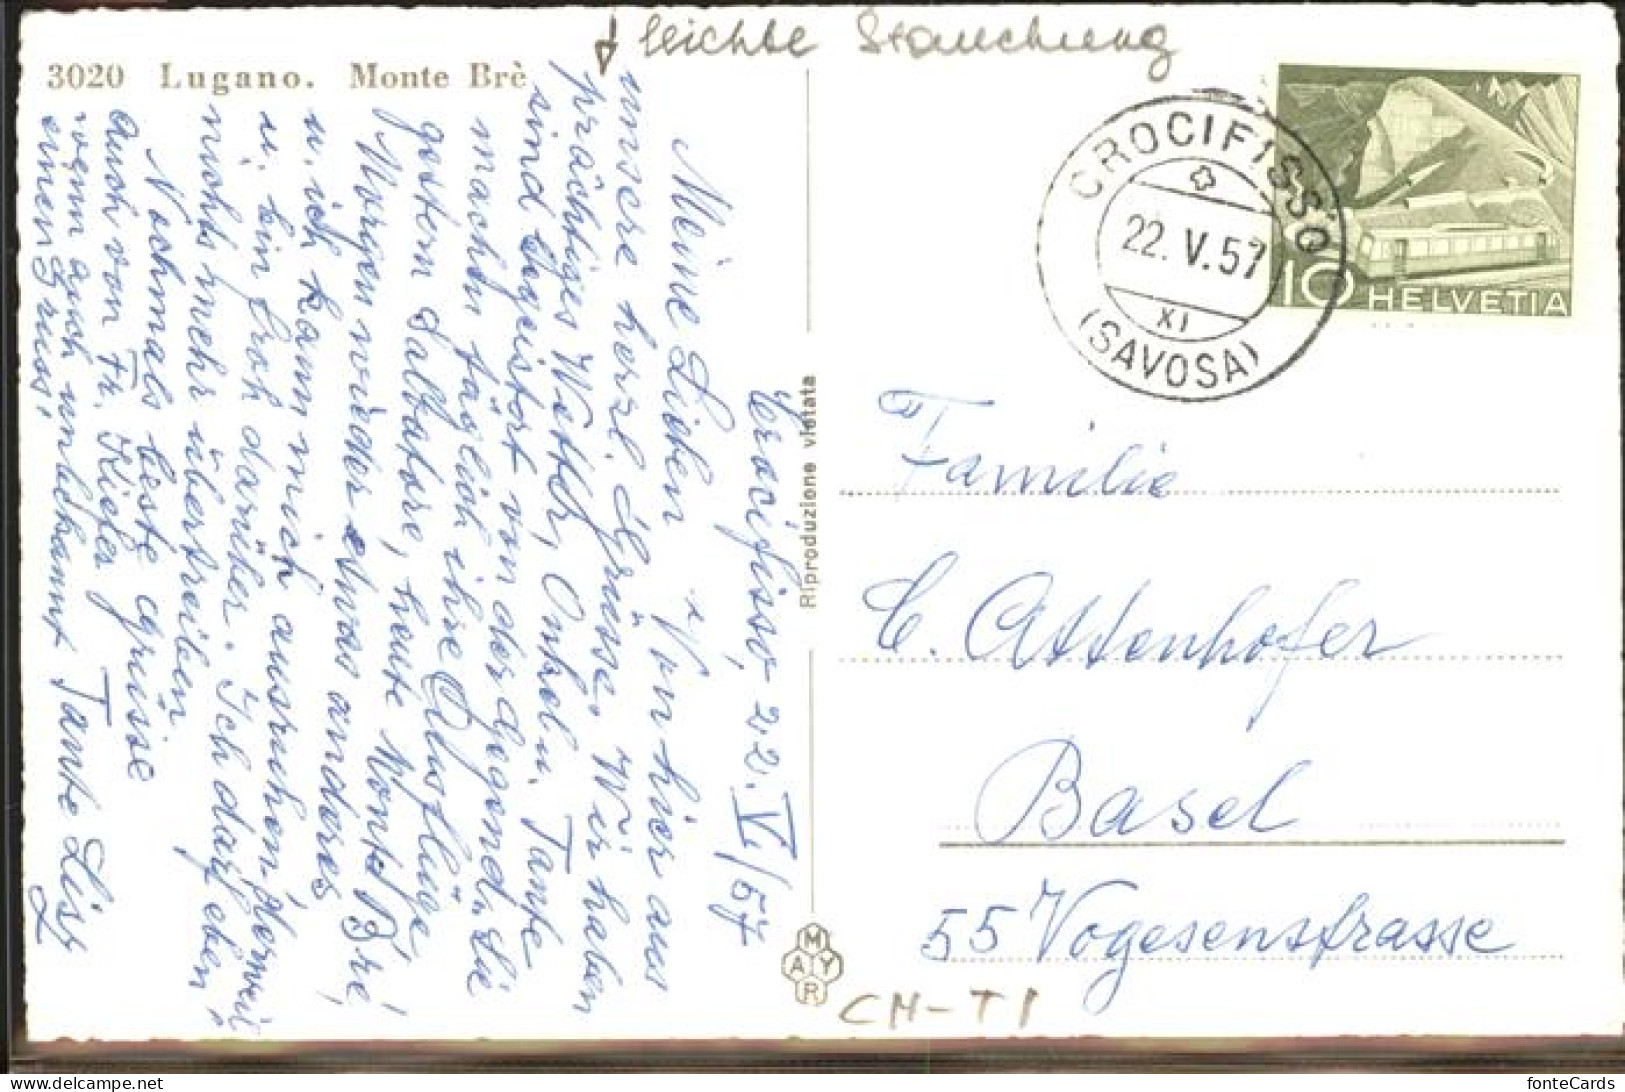 leichte Stauchung
3020 Lugano. Monte Brè
CROCIFISSO
22. V. 57
XI
(SAVOSA)
10 HELVETIA
Crocifisso, 22. V./57
Meine Lieben! Von hier aus
unsere herzl. Grüsse. Wir haben
prächtiges Wetter, Onkel u. Tante
sind begeistert von der Gegend. Sie
machen täglich ihre Ausflüge,
gestern Salvatore, heute Monte Brè,
Morgen wieder etwas anderes
u. ich kann mich ausruhen
u. bin froh darüber. Ich darf eben
nichts mehr übertreiben.
Nochmals beste Grüsse
auch von Fr.
wenn auch unbekannt Tante Lisy
einen Gruss!
Riproduzione vietata
MAYR
Familie
E. Attenhofer
Basel
55 Vogesenstrasse
CH-TI
fonteCards